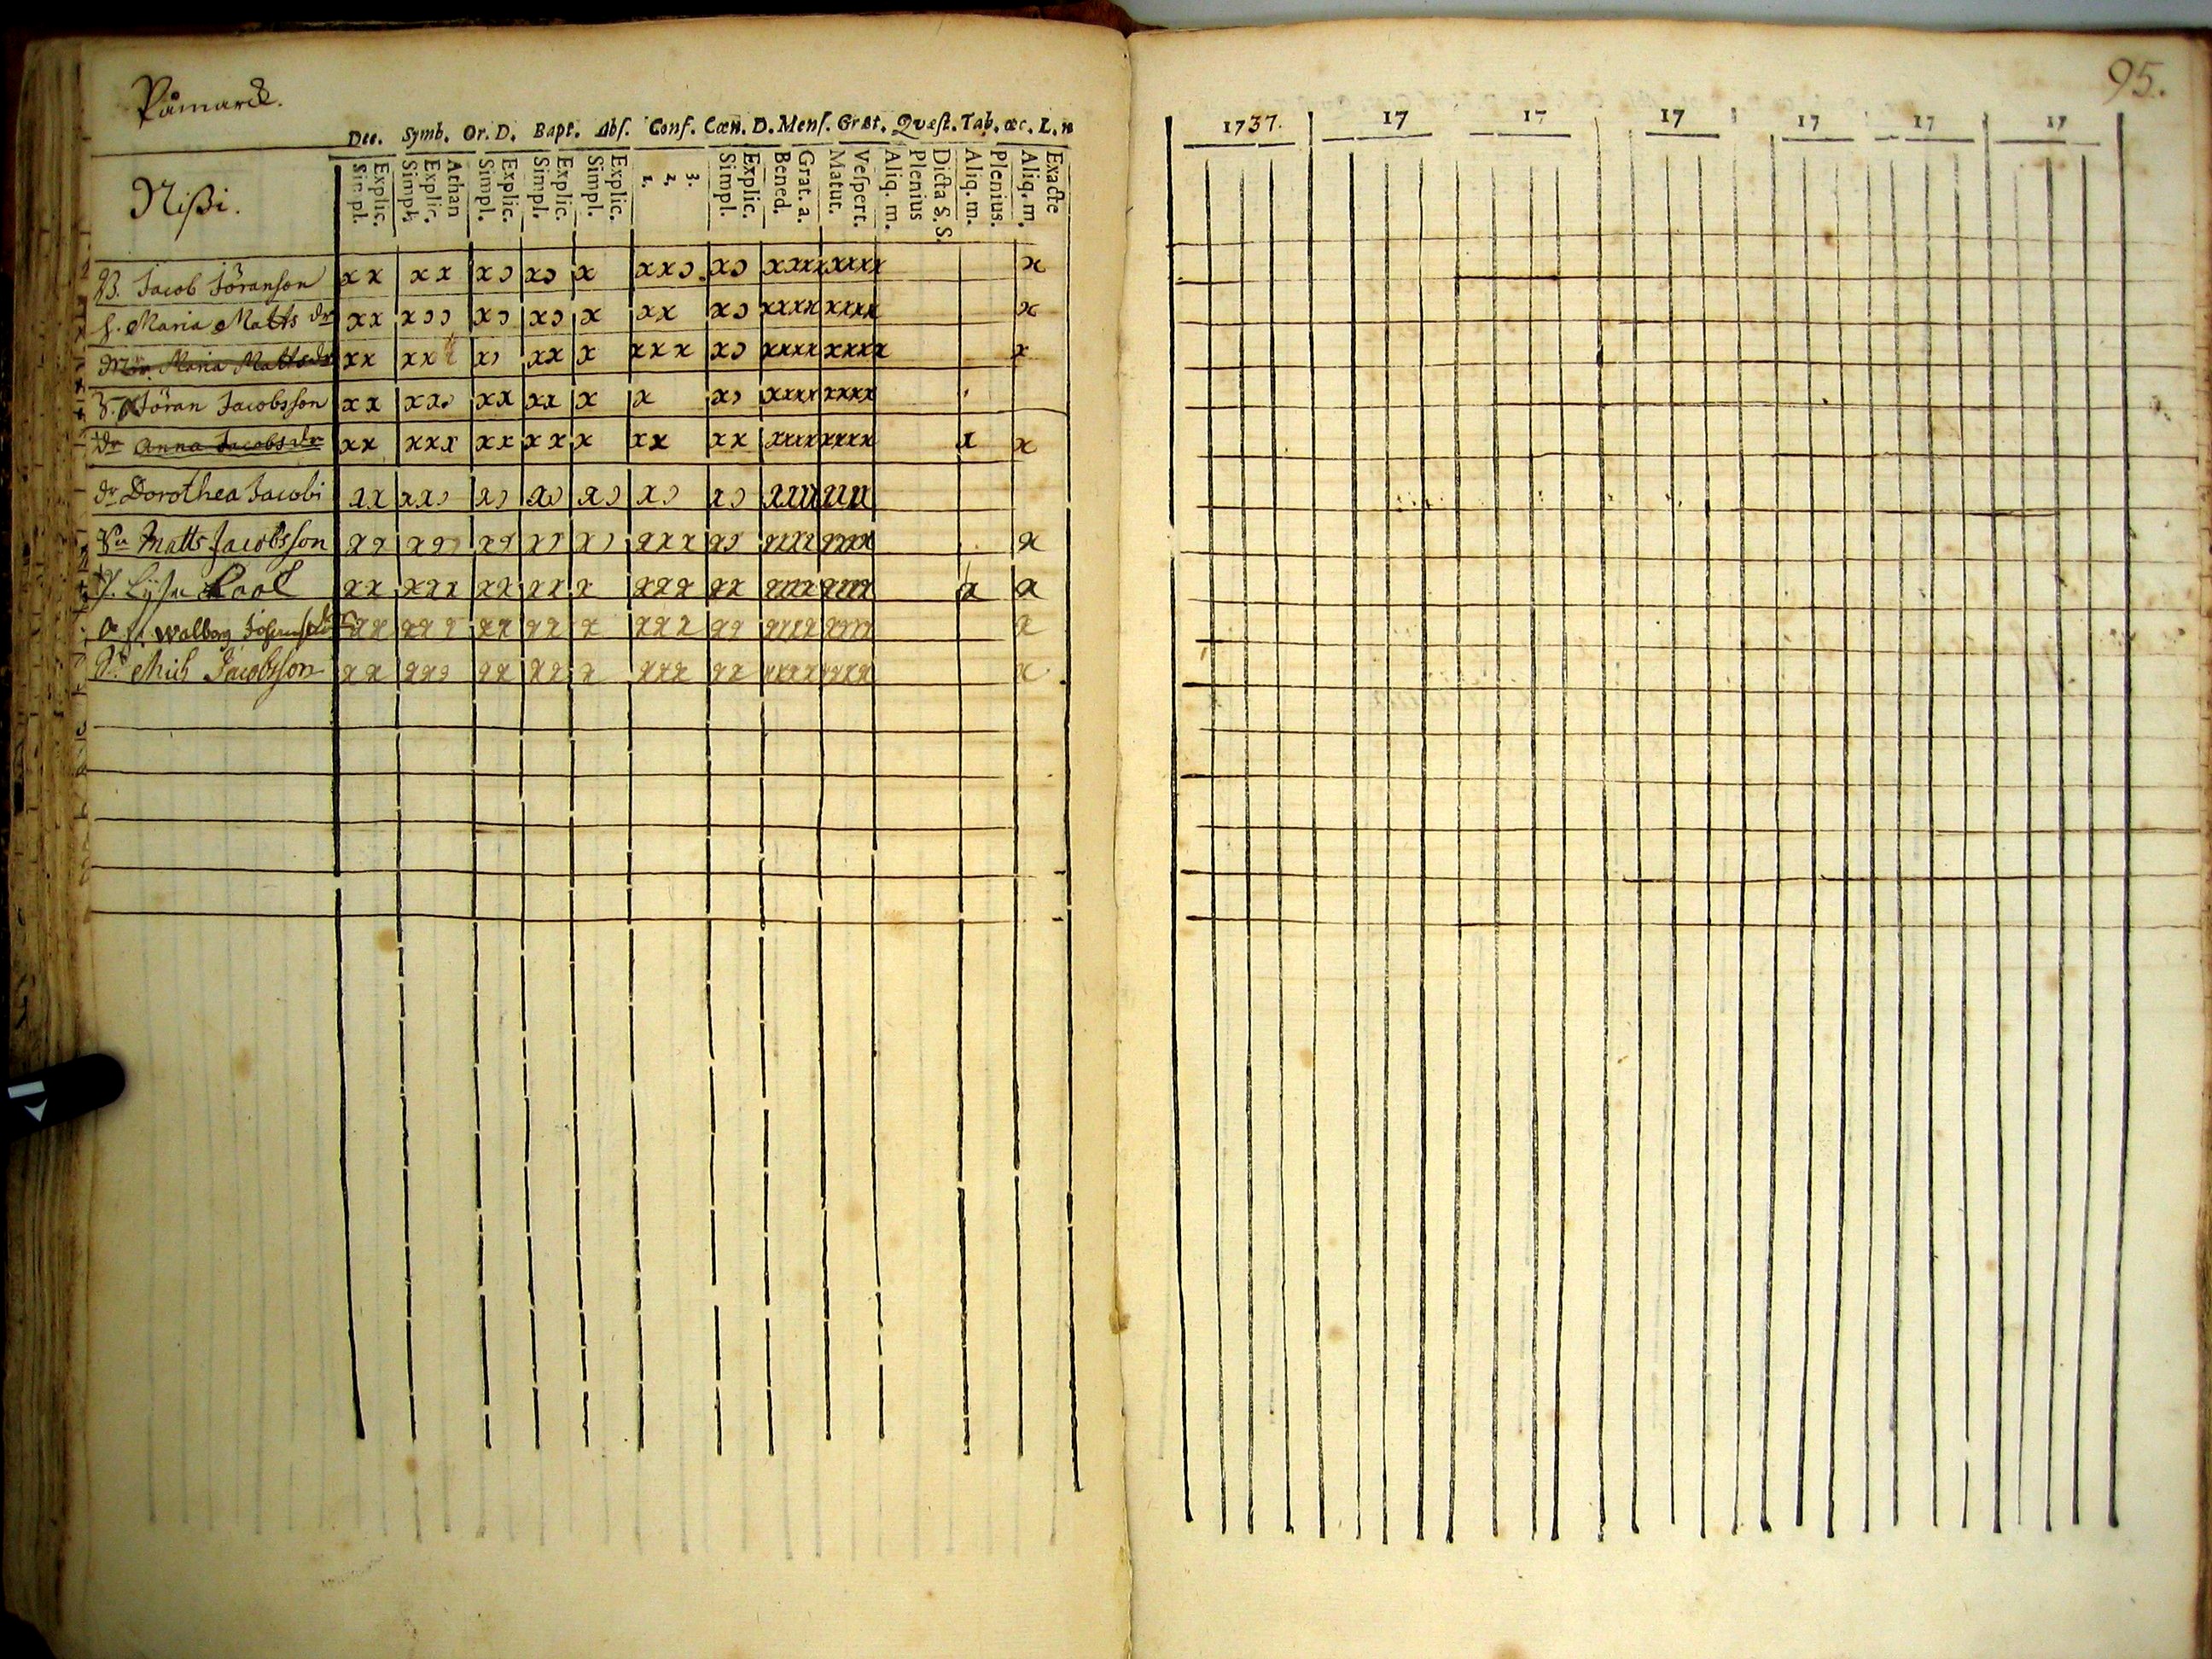 Påmarck.
95.
Dec. Symb. Or. D. Bapt. Abs. Conf. Cœn. D. Mens. Grat. Quæst. Tab. œc. L. n
1737. 17 17 17 17 17 17
Nißi.
Simpl. Explic. Simpl. Explic. Athan Simpl. Explic. Simpl. Explic. Simpl. Explic. 1, 2, 3. Simpl. Explic. Bened. Grat. a. Matut. Vespert. Aliq. m. Plenius Dicta S. S. Aliq. m. Plenius. Aliq. m. Exacte
B. Jacob Jöranson x x x x x ɔ x ɔ x x x ɔ x ɔ xxxx xxxx x
h. Maria Matts dr x x x ɔ ɔ x ɔ x ɔ x x x x ɔ xxxx xxxx x
Maria Matts dr x x x x x ɔ x x x x x x x ɔ xxxx xxxx x
Jöran Jacobsson x x x x ɔ x x x x x x x ɔ xxxx xxxx
dr Anna Jacobs dr x x x x x x x x x x x x x x xxxx xxxx x x
dr Dorothea Jacobi x x x x ɔ x ɔ x ɔ x ɔ x ɔ x ɔ xxxx xxxx
Matts Jacobsson x x x x ɔ x x x ɔ x ɔ x x x x ɔ xxxx xxxx x
Lijsa x x x x x x x x x x x x x x x xxxx xxxx x x
Walborg x x x x x x x x x x x x x x x xxxx xxxx x
Mich Jacobsson x x x x ɔ x x x x x x x x x x xxxx xxxx x